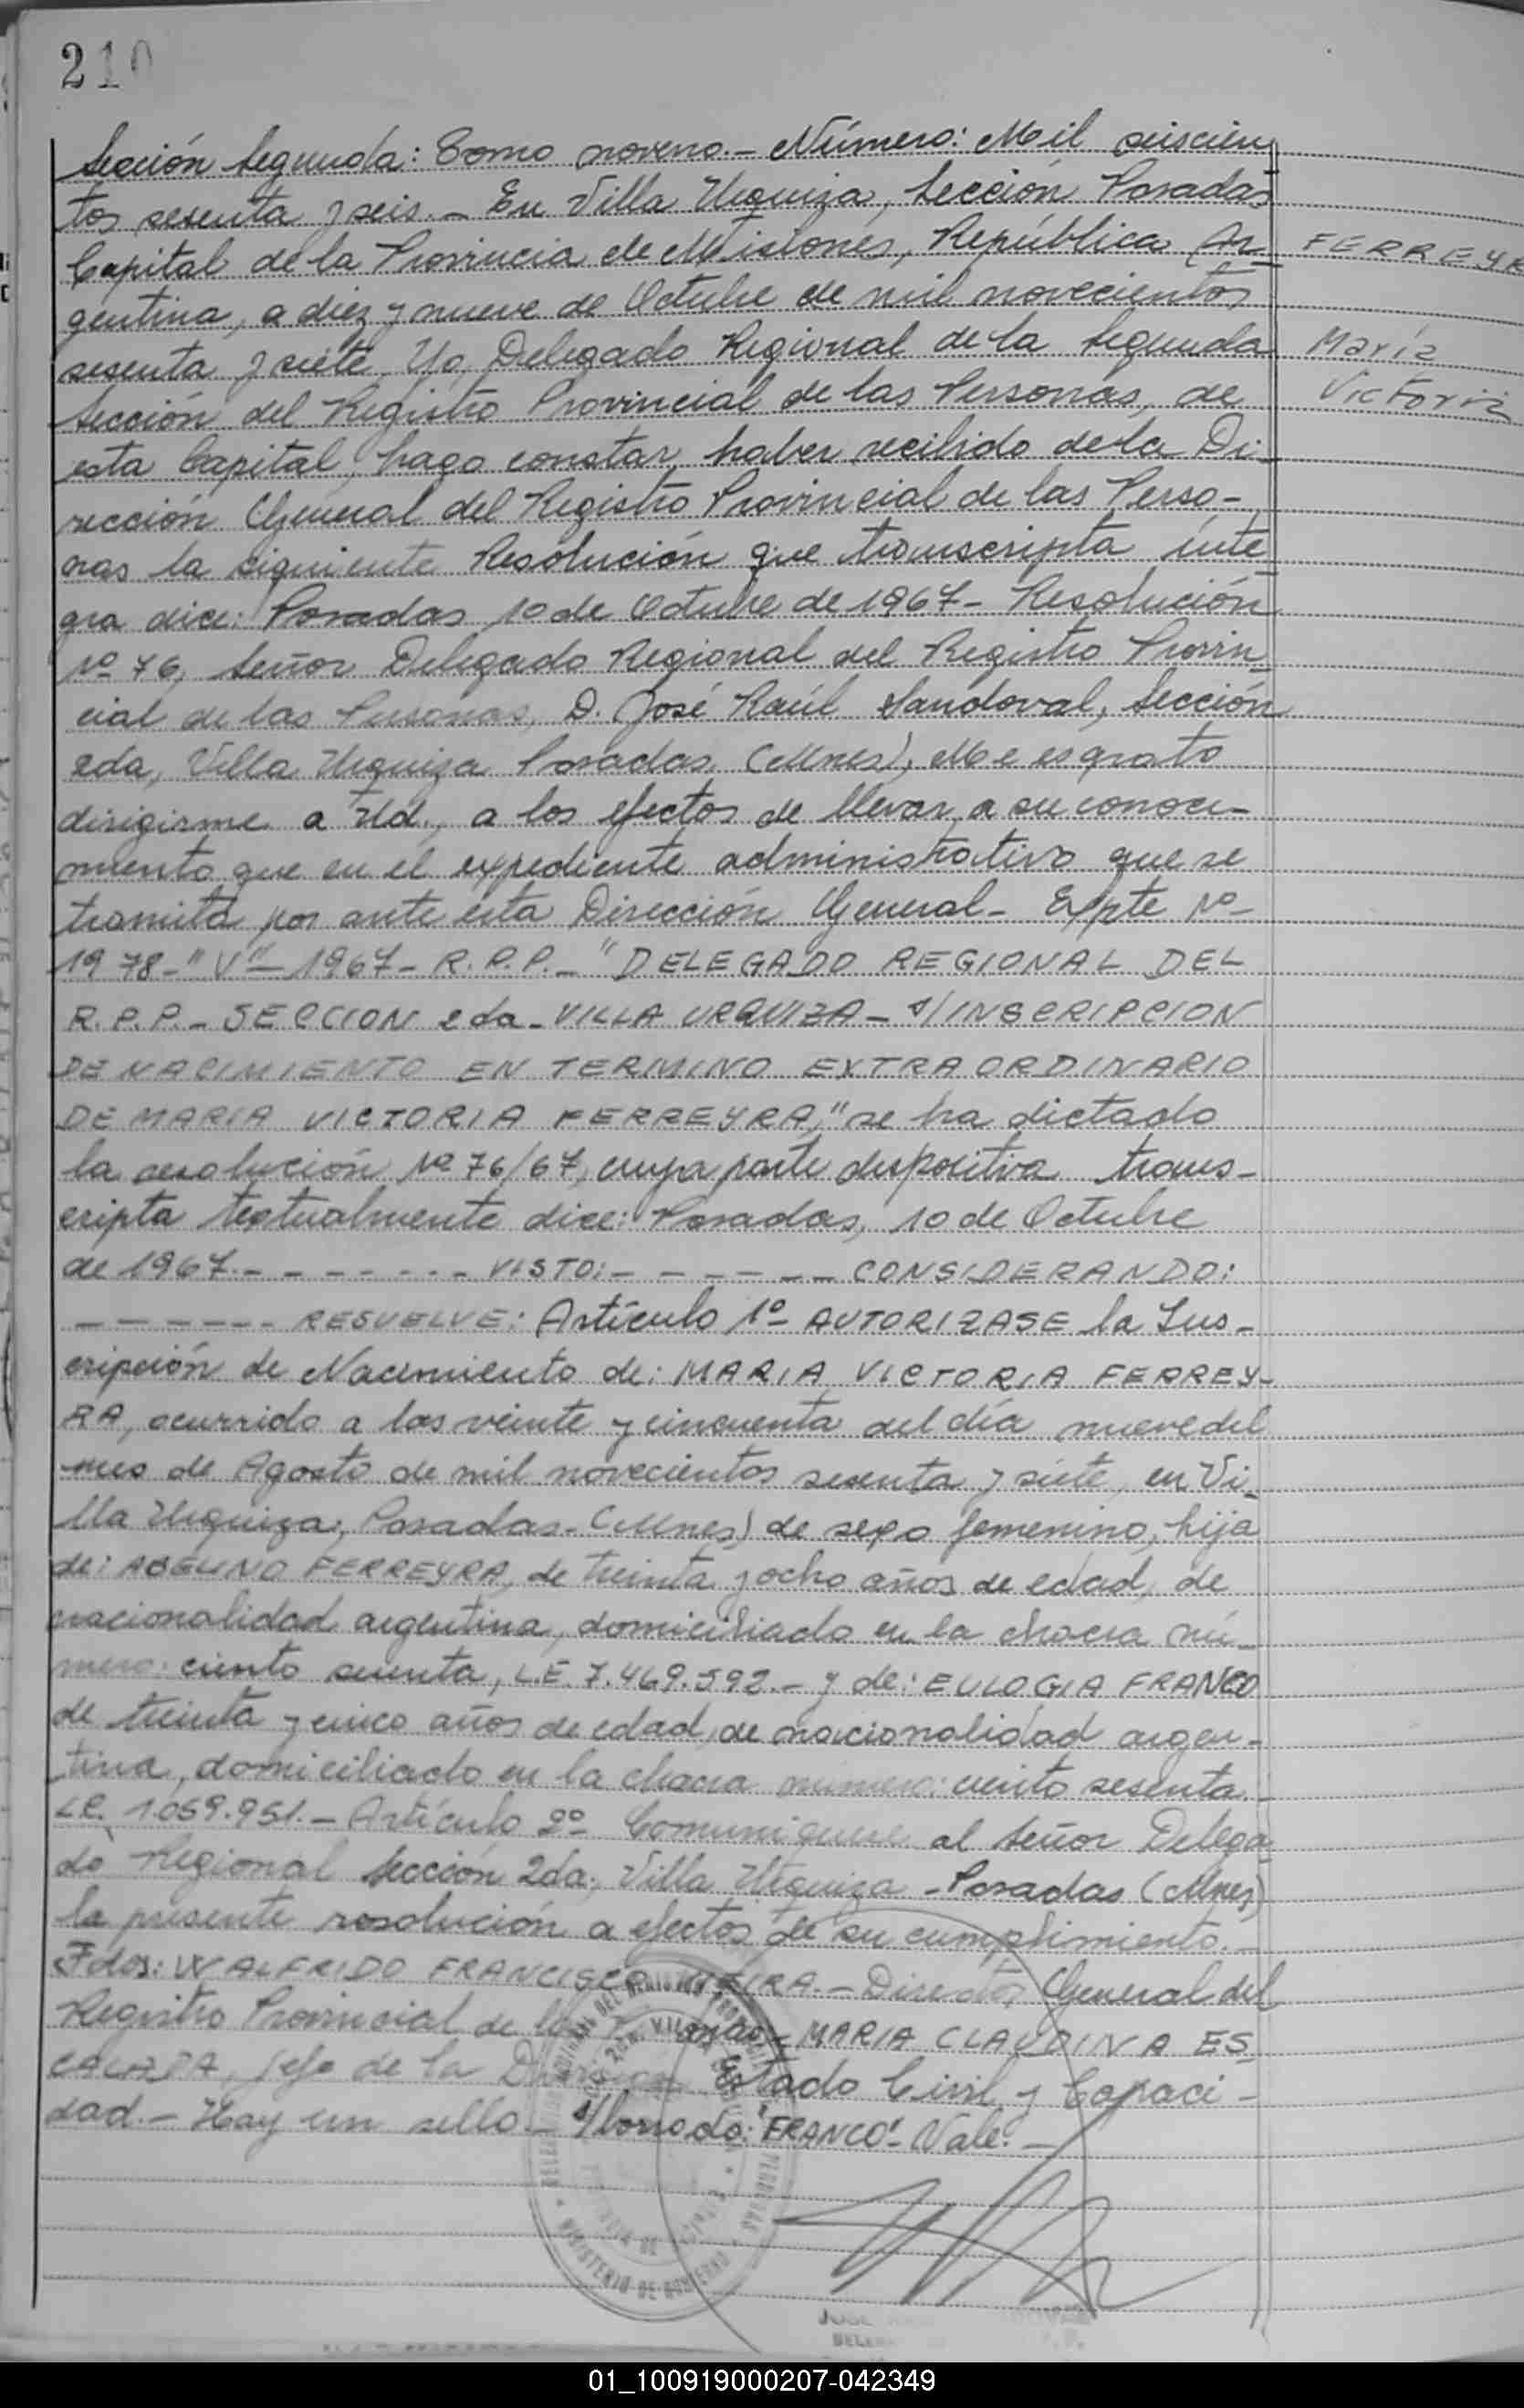 210
Sección Segunda: Tomo noveno.- Número: Mil seiscien
tos sesenta y seis.- En Villa Urquiza, Sección Posadas
Capital de la Provincia de Misiones, República Ar-
FERREYR
gentina, a diez y nueve de Octubre de mil novecientos
sesenta y siete, Yo, Delegado Regional de la Segunda
María
Sección del Registro Provincial de las Personas, de
Victoria
esta Capital, hago constar, haber recibido de la Di-
rección General del Registro Provincial de las Perso-
nas la siguiente Resolución que transcripta inte
gra dice: Posadas 10 de Octubre de 1967- Resolución
Nº 76, Señor Delegado Regional del Registro Provin
cial de las Personas, D. José Raúl Sandoval, Sección
2da, Villa Urquiza Posadas, (Mnes), Me es grato
dirigirme a Ud., a los efectos de llevar a su conoci-
miento que en el expediente administrativo que se
tramita por ante esta Dirección General- Expte Nº-
1978-"V"-1967- R.P.P.- "DELEGADO REGIONAL DEL
R.P.P.- SECCION 2da- VILLA URQUIZA- s/INSCRIPCION
DE NACIMIENTO EN TERMINO EXTRAORDINARIO
DE MARIA VICTORIA FERREYRA," se ha dictado
la resolución Nº 76/67, cuya parte dispositiva trans-
cripta textualmente dice: Posadas, 10 de Octubre
de 1967.- - - - - - - - VISTO:- - - - - - - CONSIDERANDO:
- - - - - - - RESUELVE: Artículo 1º- AUTORIZASE la Ins-
cripción de Nacimiento de: MARIA VICTORIA FERREY-
RA, ocurrido a las veinte y cincuenta del día nueve del
mes de Agosto de mil novecientos sesenta y siete, en Vi-
lla Urquiza, Posadas- (Mnes) de sexo femenino, hija
de: ABELINO FERREYRA, de treinta y ocho años de edad, de
nacionalidad argentina, domiciliado en la chacra nú-
mero: ciento sesenta, L.E. 7.469.592.- y de: EULOGIA FRANCO
de treinta y cinco años de edad, de nacionalidad argen-
tina, domiciliado en la chacra número: ciento sesenta.-
L.C. 1.059.951.- Artículo 2º- Comuníquese al Señor Delega
do Regional Sección 2da, Villa Urquiza - Posadas (Mnes)
la presente resolución a efectos de su cumplimiento.-
Fdos: WALFRIDO FRANCISCO VIEIRA.- Director General del
Registro Provincial de las Personas- MARIA CLAUDINA ES
CALADA, Jefe de la División Estado Civil y Capaci-
dad.- Hay un sello.- s/borrado: "FRANCO"- Vale.-
MINISTERIO DE GOBIERNO
01_100919000207-042349